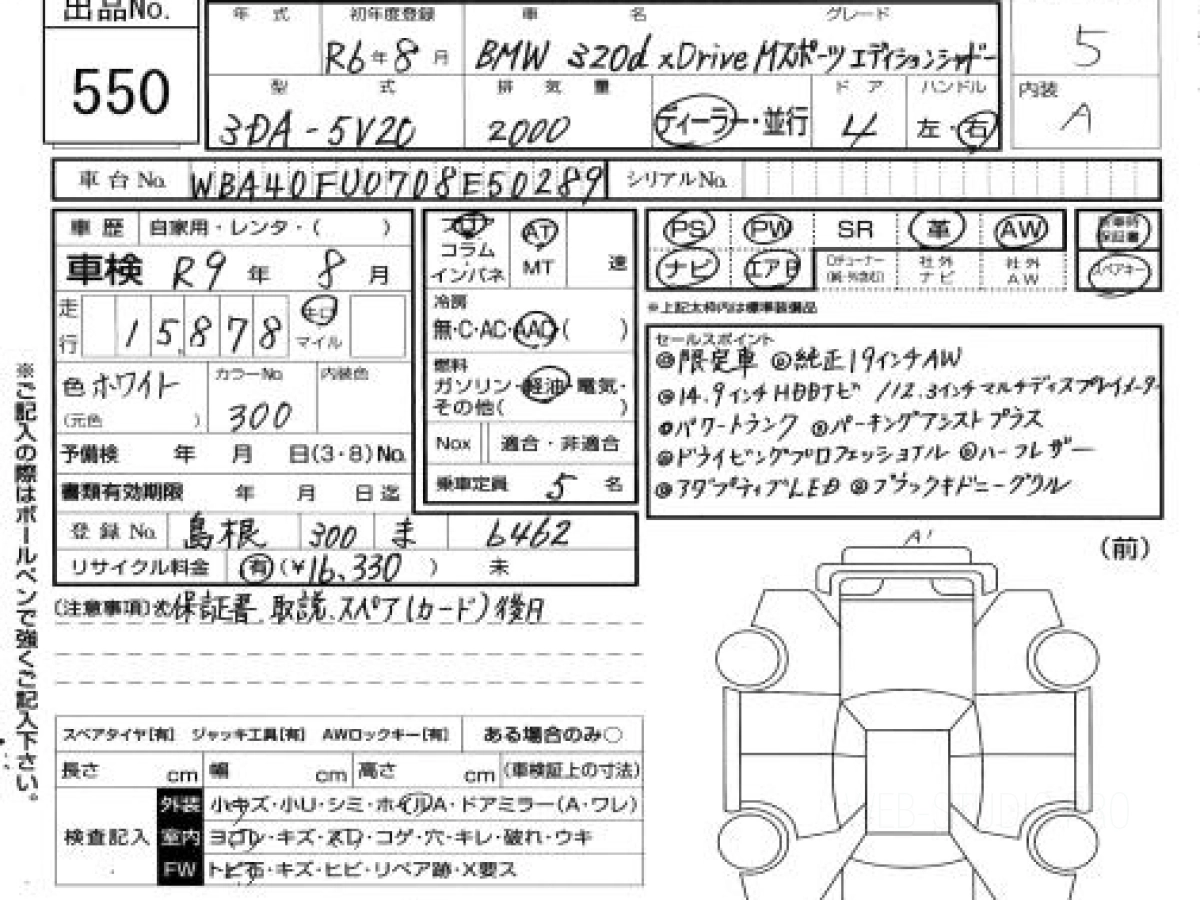 出品No.
550
年 式 初年度登録 車 名 グレード
R6年8月 BMW 320d xDrive Mスポーツ エディションシャドー
5
型 式 排 気 量 ディーラー・並行 ド ア ハンドル
3DA-5V20 2000 4 左・右
内装
A
車台No. WBA40FU0708E50289 シリアルNo.
車歴 自家用・レンタ・( )
車検 R9年 8月
走行 15,878 キロ マイル
色 ホワイト カラーNo. 300 内装色
(元色 )
予備検 年 月 日(3・8)No.
書類有効期限 年 月 日迄
フロア コラム インパネ
AT MT 速
冷房
無・C・AC・AAC( )
燃料
ガソリン・軽油・電気・
その他( )
Nox 適合・非適合
乗車定員 5 名
登録No. 島根 300 ま 6462
リサイクル料金 有(¥16,330 ) 未
PS PW SR 革 AW 新車時保証書
ナビ エアB 社外ナビ 社外AW スペアキー
※上記太枠内は標準装備品
セールスポイント
◎限定車 ◎純正19インチAW
◎14.9インチHDDナビ /12.3インチマルチディスプレイメーター
◎パワートランク ◎パーキングアシストプラス
◎ドライビングプロフェッショナル ◎ハーフレザー
◎アダプティブLED ◎ブラックキドニーグリル
(注意事項) 保証書、取説、スペア(カード)後日
※ご記入の際はボールペンで強くご記入下さい。
A' (前)
スペアタイヤ[有] ジャッキ工具[有] AWロックキー[有] ある場合のみ○
長さ cm 幅 cm 高さ cm (車検証上の寸法)
検査記入
外装 小キズ・小U・シミ・ホイルA・ドアミラー(A・ワレ)
室内 ヨゴレ・キズ・スレ・コゲ・穴・キレ・破れ・ウキ
FW トビ石・キズ・ヒビ・リペア跡・X要ス